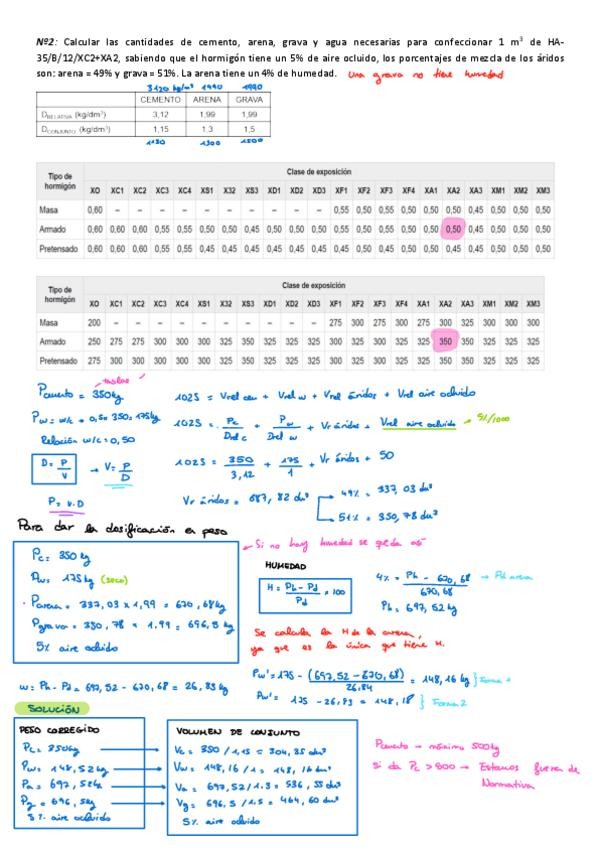 Nº2: Calcular las cantidades de cemento, arena, grava y agua necesarias para confeccionar 1 m³ de HA-
35/B/12/XC2+XA2, sabiendo que el hormigón tiene un 5% de aire ocluido, los porcentajes de mezcla de los áridos
son: arena = 49% y grava = 51%. La arena tiene un 4% de humedad. La grava no tiene humedad
3120 kg/m³ 1990 1990
CEMENTO ARENA GRAVA
D_RELATIVA (kg/dm³) 3,12 1,99 1,99
D_CONJUNTO (kg/dm³) 1,15 1.3 1,5
1150 1300 1500
Tipo de hormigón Clase de exposición
X0 XC1 XC2 XC3 XC4 XS1 X32 XS3 XD1 XD2 XD3 XF1 XF2 XF3 XF4 XA1 XA2 XA3 XM1 XM2 XM3
Masa 0,60 – – – – – – – – – – 0,55 0,50 0,55 0,50 0,50 0,50 0,45 0,50 0,50 0,50
Armado 0,60 0,60 0,60 0,55 0,55 0,50 0,50 0,45 0,50 0,50 0,50 0,55 0,50 0,55 0,50 0,50 0,50 0,45 0,50 0,50 0,50
Pretensado 0,60 0,60 0,60 0,55 0,55 0,45 0,45 0,45 0,45 0,45 0,45 0,50 0,50 0,50 0,50 0,50 0,45 0,45 0,50 0,50 0,50
Tipo de hormigón Clase de exposición
X0 XC1 XC2 XC3 XC4 XS1 X32 XS3 XD1 XD2 XD3 XF1 XF2 XF3 XF4 XA1 XA2 XA3 XM1 XM2 XM3
Masa 200 – – – – – – – – – – 275 300 275 300 275 300 325 300 300 300
Armado 250 275 275 300 300 300 325 350 325 325 325 300 325 300 325 325 350 350 325 325 325
Pretensado 275 300 300 300 300 300 325 350 325 325 325 300 325 300 325 325 350 350 325 325 325
Pcemento = 350kg
Pw = w/c = 0,5 x 350 = 175kg
Relación w/c = 0,50
D = P/V → V = P/D
P = V.D
1025 = Vrel cem + Vrel w + Vrel áridos + Vrel aire ocluido
1025 = Pc/Drel c + Pw/Drel w + Vr áridos + Vrel aire ocluido → 5%/1000
1025 = 350/3,12 + 175/1 + Vr áridos + 50
Vr áridos = 687,82 dm³
49% = 337,03 dm³
51% = 350,78 dm³
Para dar la dosificación en peso
→ Si no hay humedad se queda así
Pc = 350 kg
Pw = 175 kg (seco)
Parena = 337,03 x 1,99 = 670,68kg
Pgrava = 350,78 x 1,99 = 696,5 kg
5% aire ocluido
HUMEDAD
H = Ph - Pd / Pd x 100
4% = Ph - 670,68 / 670,68 → Pd arena
Ph = 697,52 kg
Se calcula la H de la arena,
ya que es la única que tiene H.
w = Ph - Pd = 697,52 - 670,68 = 26,83 kg
Pw' = 175 - (697,52 - 670,68) = 148,16 kg } Forma 1
26,84
Pw' = 175 - 26,83 = 148,18 } Forma 2
SOLUCIÓN
PESO CORREGIDO
Pc = 350kg
Pw = 148,52kg
Pa = 697,52kg
Pg = 696,5kg
5% aire ocluido
VOLUMEN DE CONJUNTO
Vc = 350 / 1,15 = 304,35 dm³
Vw = 148,16 / 1 = 148,16 dm³
Va = 697,52 / 1.3 = 536,55 dm³
Vg = 696,5 / 1.5 = 464,60 dm³
5% aire ocluido
Pcemento → máximo 500kg
Si da Pc > 500 → Estamos fuera de
Normativa